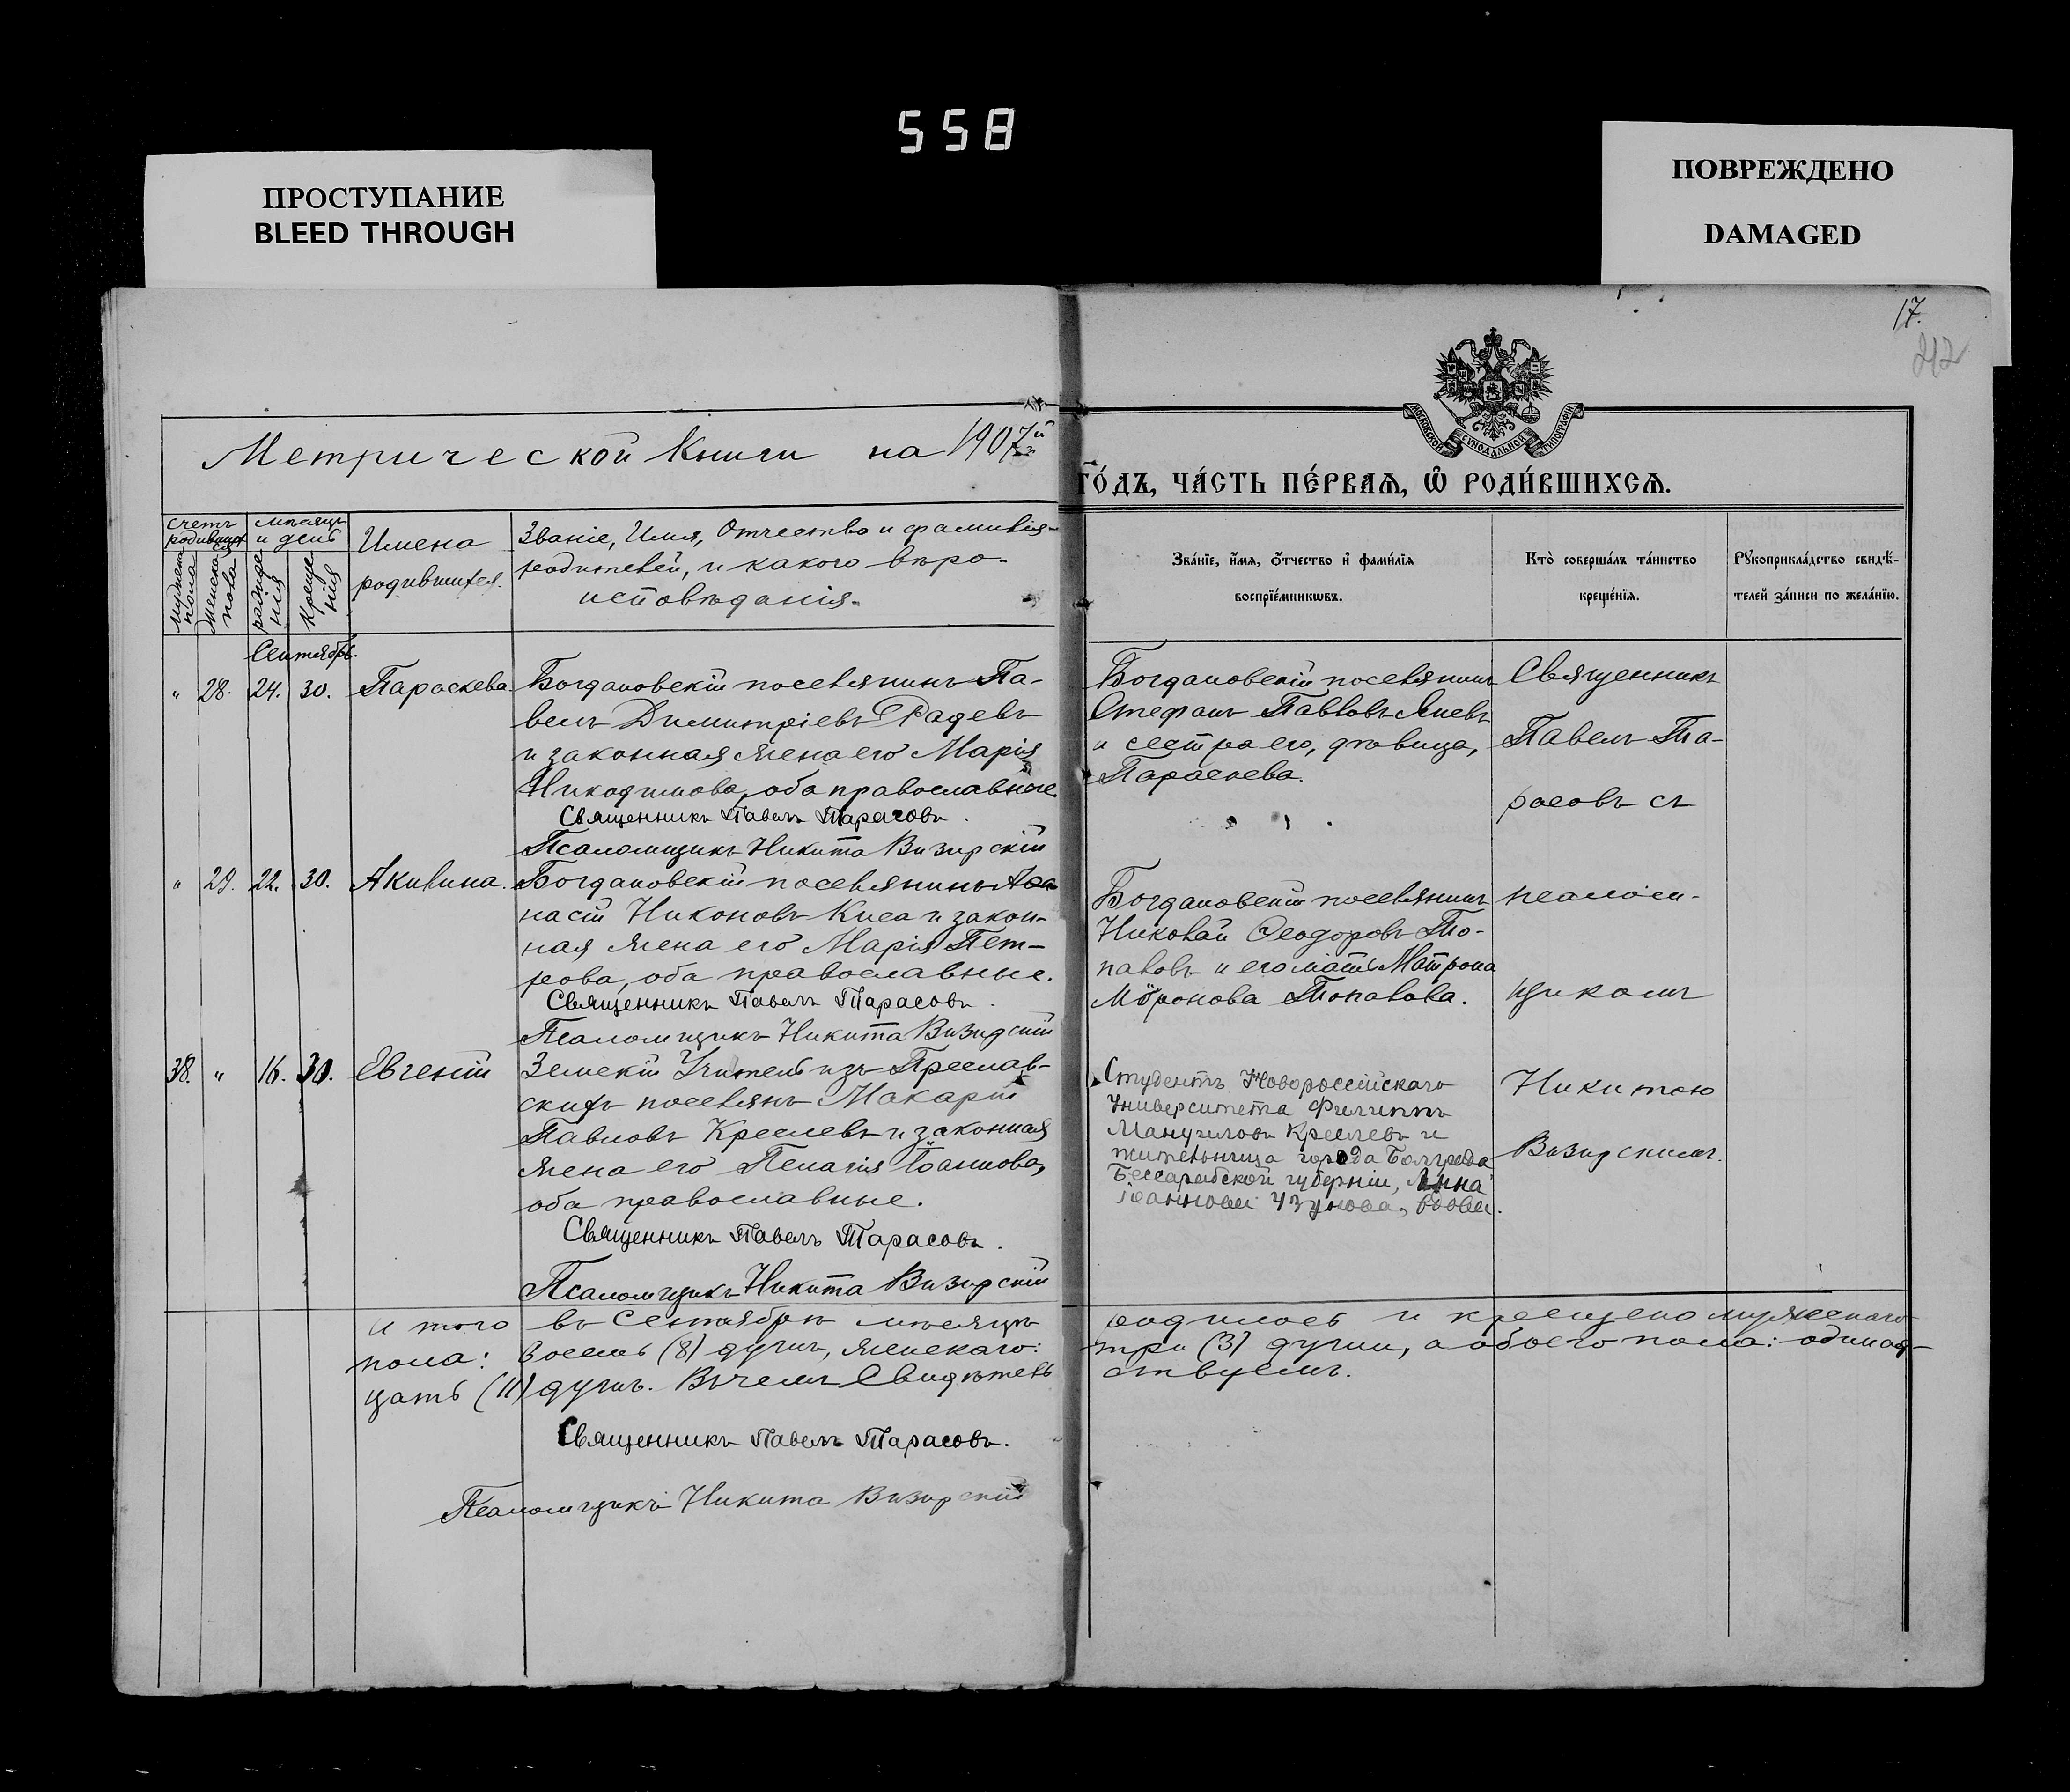 558
ПРОСТУПАНИЕ
BLEED THROUGH
ПОВРЕЖДЕНО
DAMAGED
17.
212
МОСКОВСКОЙ СУНОДАЛЬНОЙ ТИПОГРАФІИ
Метрической Книги на 1907й
го́дъ, ча́сть пе́рваѧ, ѡ҆ роди́вшихсѧ.
Счетъ родившихся
мѣсяцъ и день
Имена родившихся.
Званіе, Имя, Отчество и фамилія
родителей, и какого вѣро-
исповѣданія.
мужеска пола
женска пола
рожденія
крещенія
Зва́нїе, и҆́мѧ, ѻ҆́тчество и҆ фами́лїѧ
воспрїе́мникѡвъ.
Кто̀ соверша́лъ та́инство
креще́нїѧ.
Рꙋкоприкла́дство свидѣ́-
телей за́писи по жела́нїю.
Сентябрь.
" 28. 24. 30. Параскева
Богдановскій поселянинъ Па-
велъ Димитріевъ Радевъ
и законная жена его Марія
Никодимова, оба православные.
Священникъ Павелъ Тарасовъ.
Псаломщикъ Никита Визирскій
Богдановскій поселянинъ
Стефанъ Павловъ Яневъ
и сестра его, дѣвица,
Параскева.
Священникъ
Павелъ Та-
расовъ съ
" 29. 22. 30. Акилина.
Богдановскій поселянинъ Аѳа-
насій Никоновъ Киса и закон-
ная жена его Марія Пет-
рова, оба православные.
Священникъ Павелъ Тарасовъ.
Псаломщикъ Никита Визирскій
Богдановскій поселянинъ
Николай Ѳеодоровъ То-
паловъ и его мать Матрона
Миронова Топалова.
псалом-
щикомъ
38. " 16. 30. Евгеній
Земскій Учитель изъ Преслав-
скихъ поселянъ Макарій
Павловъ Креслевъ и законная
жена его Пелагія Іоаннова,
оба православные.
Священникъ Павелъ Тарасовъ.
Псаломщикъ Никита Визирскій
Студентъ Новороссійскаго
Университета Филиппъ
Мануиловъ Креслевъ и
жительница города Болграда
Бессарабской губерніи, Анна
Іоаннова Узунова, вдова.
Никитою
Визирскимъ.
Итого въ Сентябрѣ мѣсяцѣ родилось и крещено мужескаго
пола: восемь (8) душъ, женскаго: три (3) души, а обоего пола: одинад-
цать (11) душъ. Въ чемъ Свидѣтель ствуемъ.
Священникъ Павелъ Тарасовъ.
Псаломщикъ Никита Визирскій